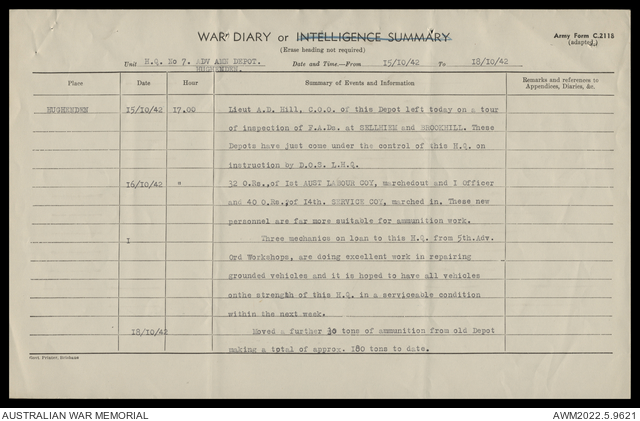 WAR DIARY or INTELLIGENCE SUMMARY
Army Form C.2118
(adapted.)
(Erase heading not required)
Unit H.Q. No 7. ADV AMN DEPOT. Date and Time.—From 15/10/42 To 18/10/42
HUGHENDEN.
Place Date Hour Summary of Events and Information Remarks and references to Appendices, Diaries, &c.
HUGHENDEN 15/10/42 17.00 Lieut A.D. Hill, C.O.O. of this Depot left today on a tour
of inspection of F.A.Ds. at SELLHIEM and BROOKHILL. These
Depots have just come under the control of this H.Q. on
instruction by D.O.S. L.H.Q.
16/10/42 " 32 O.Rs.,of 1st AUST LABOUR COY, marchedout and I Officer
and 40 O.Rs,of 14th. SERVICE COY, marched in. These new
personnel are far more suitable for ammunition work.
I Three mechanics on loan to this H.Q. from 5th.Adv.
Ord Workshops, are doing excellent work in repairing
grounded vehicles and it is hoped to have all vehicles
onthe strength of this H.Q. in a serviceable condition
within the next week.
18/10/42 Moved a further 30 tons of ammunition from old Depot
making a total of approx. 180 tons to date.
Govt. Printer, Brisbane
AUSTRALIAN WAR MEMORIAL
AWM2022.5.9621